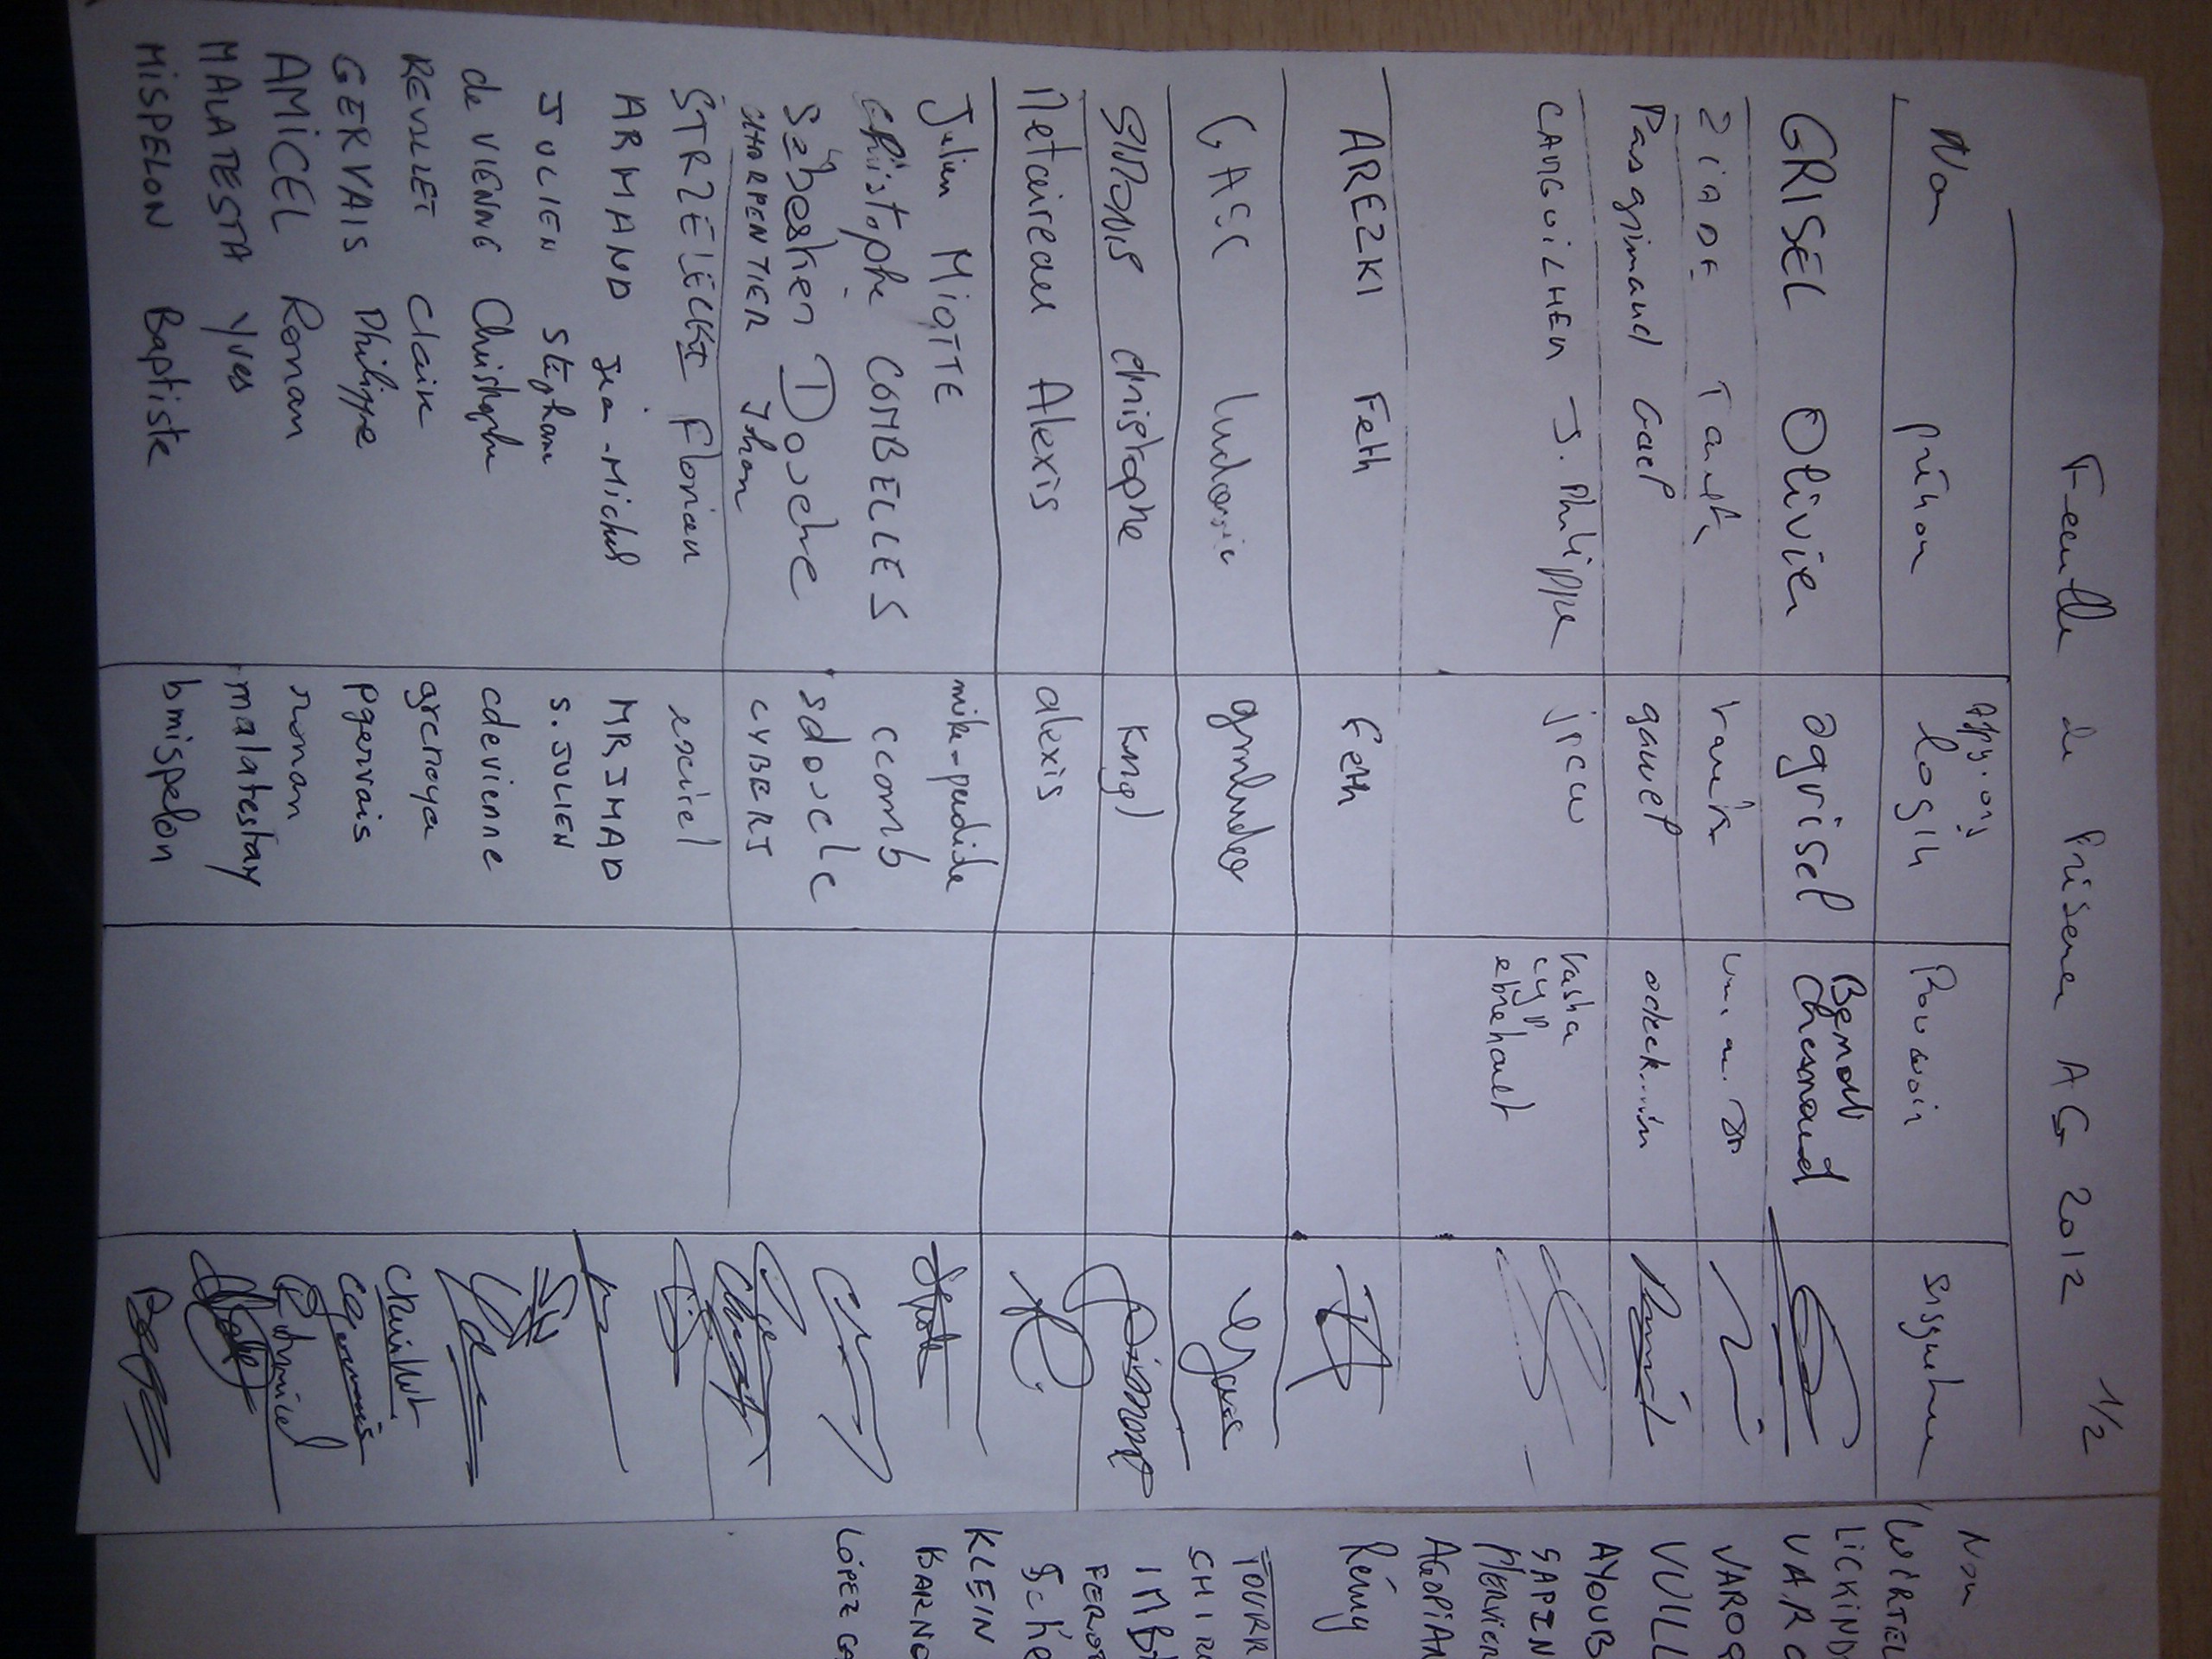 Feuille de Présence AG 2012 1/2
Nom prénom afpy.org login Pouvoir signature
GRISEL Olivier ogrisel Benoit Chesneau
ZIADE Tarek tarek
Pasgrimaud Gael gawel
CANGUILHEM J. Philippe jpcw kasha cyp ebrehault
AREZKI Feth Feth
GASC Ludovic gmludo
SIMONIS christophe Kngl
Metaireau Alexis alexis
Julien MIOTTE mike-perdide
Christophe COMBELLES ccomb
Sébastien Douche sdouche
CHARPENTIER Johan CYBERJ
STRZELECKI Florian exirel
ARMAND Jean-Michel MRJMAD
JULIEN Stéphane S.JULIEN
de VIENNE Christophe cdevienne
REVILLET Claire arcreya
GERVAIS Philippe pgervais
AMICEL Ronan ronan
MALATESTA Yves malatestay
MISPELON Baptiste bmispelon
Nom
WIRTEL
LICKIND
VARO
VAROQ
VUILL
AYOUB
SAPIN
AGOPIAN
Rémy
TOURR
IMB
KLEIN
BARNO
LÓPEZ GA